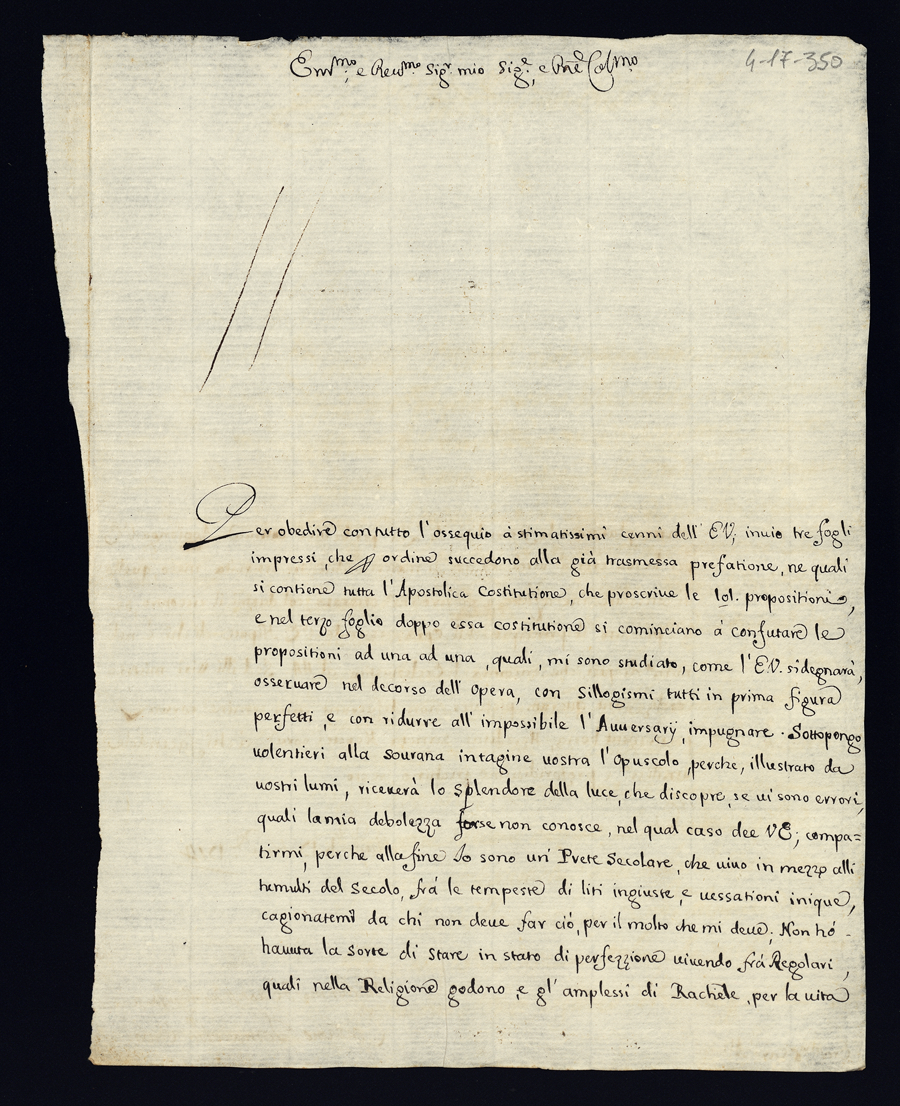 Em̃mo. e Reumo. Sigr. mio Sige., e Pñe Colmo.
4-17-350
Per obedire con tutto l'ossequio à stimatissimi cenni dell'EV; inuio tre fogli
impressi, che ꝑ ordine succedono alla già trasmessa prefatione, ne quali
si contiene tutta l'Apostolica Costitutione, che proscriue le 101. propositioni,
e nel terzo foglio doppo essa costitutione si cominciano à confutare le
propositioni ad una ad una, quali, mi sono studiato, come l'EV. si degnarà,
osseruare nel decorso dell'Opera, con Sillogismi tutti in prima figura
perfetti, e con ridurre all'impossibile l'Auuersarÿ, impugnare. Sottopongo
uolentieri alla Sourana intagine uostra l'Opuscolo, perche, illustrato da
uostri lumi, riceuerà lo Splendore della luce, che discopre, se ui sono errori,
quali la mia debolezza forse non conosce, nel qual caso dee VE; compa=
tirmi, perche alla fine Io sono un' Prete Secolare, che uiuo in mezzo alli
tumulti del Secolo, frà le tempeste di liti ingiuste, e uessationi inique,
cagionatemi da chi non deue far ciò, per il molto che mi deue; Non hò
hauuta la Sorte di Stare in stato di perfezzione uiuendo frà Regolari,
quali nella Religione godono, e gl'amplessi di Rachele, per la uita